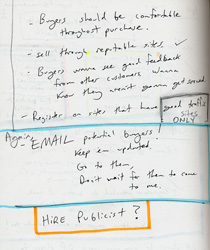 - Buyers should be comfortable
throughout purchase.
- sell through reputable sites. ✓
- Buyers wanna see good feedback
from other customers wanna
know they aren't gonna get screwed.
- Register on sites that have good traffic
sites
ONLY
Again,
- EMAIL potential buyers
Keep em updated.
Go to them,
Don't wait for them to come
to me.
HIRE PUBLICIST?